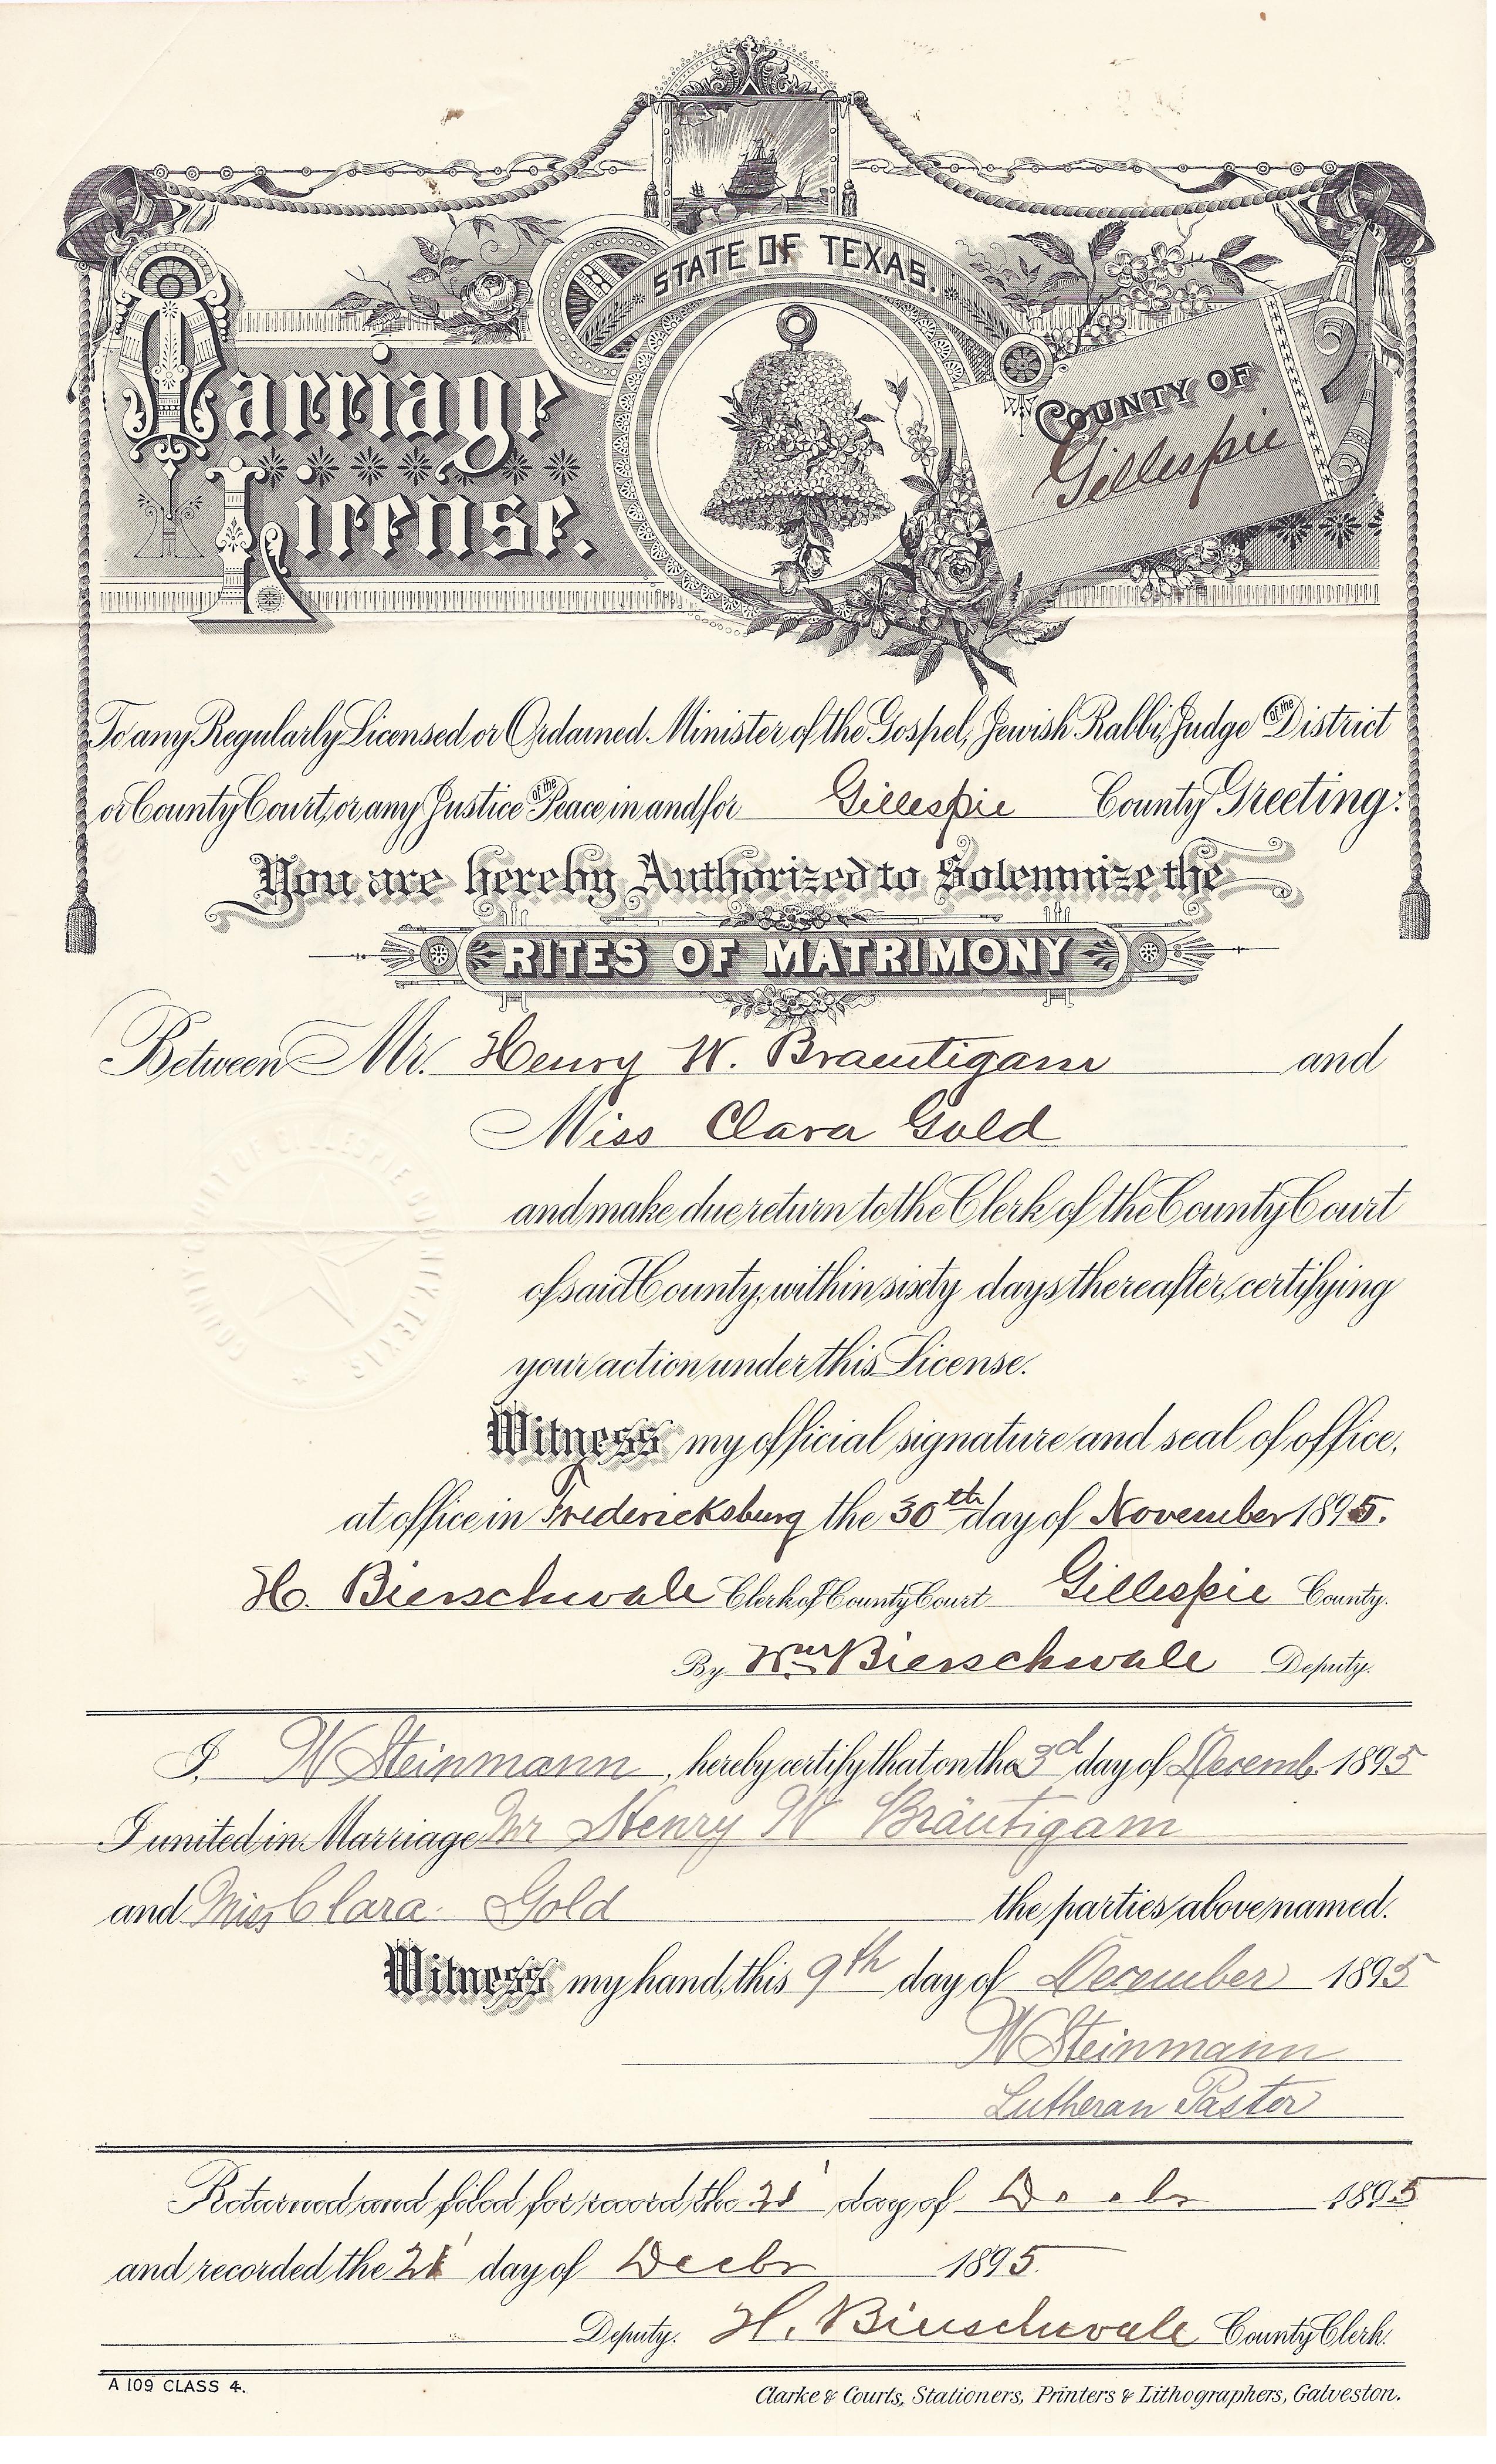 STATE OF TEXAS.
Marriage
License.
COUNTY OF
Gillespie
To any Regularly Licensed or Ordained Minister of the Gospel, Jewish Rabbi, Judge of the District
or County Court, or any Justice of the Peace, in and for Gillespie County Greeting:
You are hereby Authorized to Solemnize the
RITES OF MATRIMONY
Between Mr. Henry W. Braeutigam and
Miss Clara Gold
and make due return to the Clerk of the County Court
of said County, within sixty days thereafter, certifying
your action under this License.
Witness my official signature and seal of office,
at office in Fredericksburg the 30th day of November 1895.
H. Bierschwale Clerk of County Court Gillespie County.
By Wm Bierschwale Deputy.
I, W Steinmann, hereby certify that on the 3d day of Decemb. 1895
I united in Marriage Mr Henry W Bräutigam
and Miss Clara Gold the parties above named.
Witness my hand, this 9th day of December 1895
W Steinmann
Lutheran Pastor
Returned and filed for record, the 21 day of 1895
and recorded the 21 day of Decbr 1895.
Deputy. H. Bierschwale County Clerk.
A 109 CLASS 4.
Clarke & Courts, Stationers, Printers & Lithographers, Galveston.